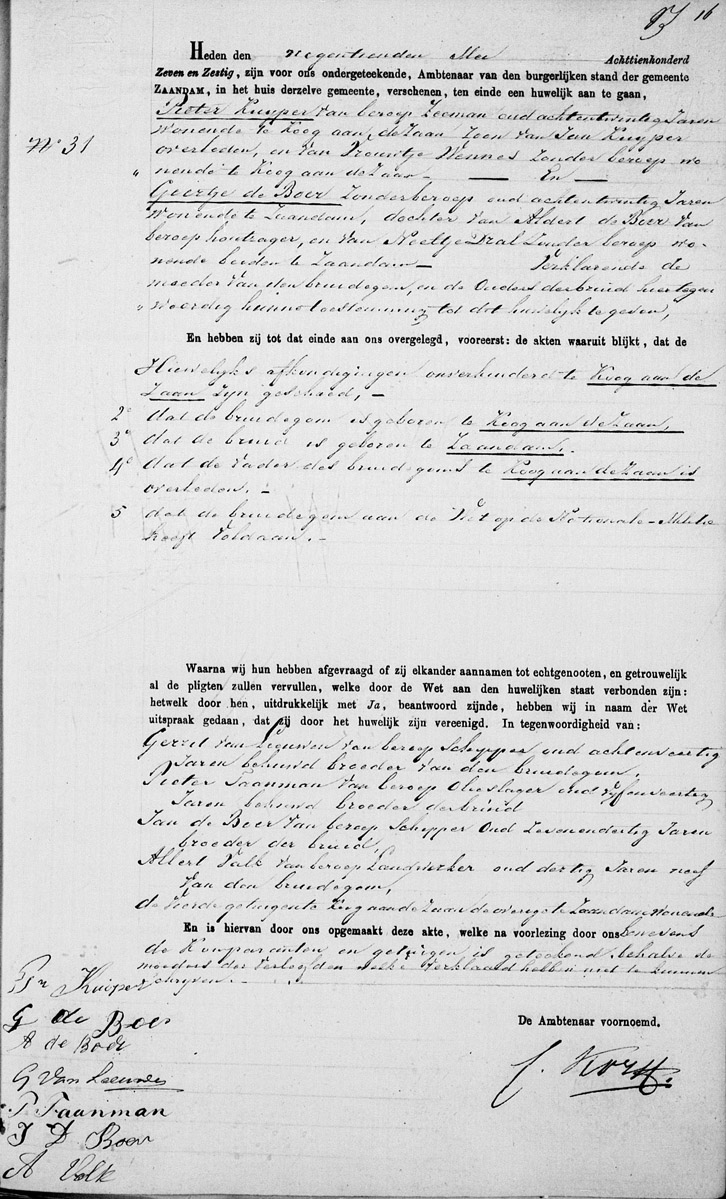 16
Heden den negentienden Mei Achttienhonderd
Zeven en Zestig, zijn voor ons ondergeteekende, Ambtenaar van den burgerlijken stand der gemeente
ZAANDAM, in het huis derzelve gemeente, verschenen, ten einde een huwelijk aan te gaan,
Pieter Kuyper van beroep Zeeman oud achtentwintig Jaren
wonende te Koog aan de Zaan, Zoon van Jan Kuyper
No 31
overleden, en van Trouwtje Wennes Zonder beroep wo-
nende te Koog aan de Zaan — En —
Geertje de Boer Zonder beroep oud achtentwintig Jaren
wonende te Zaandam, dochter van Aldert de Boer van
beroep houtzager, en van Neeltje Dral Zonder beroep wo-
nende beiden te Zaandam — Verklarende de
moeder van den bruidegom, en de Ouders der bruid hier tegen
woordig hunne toestemming tot dit huwelijk te geven,
En hebben zij tot dat einde aan ons overgelegd, vooreerst: de akten waaruit blijkt, dat de
Huwelijks afkondigingen onverhinderd te Koog aan de
Zaan zijn geschied, —
2e dat de bruidegom is geboren te Koog aan de Zaan,
3e dat de bruid is geboren te Zaandam.
4e dat de vader des bruidegoms te Koog aan de Zaan is
overleden. —
5 dat de bruidegom aan de Wet op de Nationale Militie
heeft voldaan. —
Waarna wij hun hebben afgevraagd of zij elkander aannamen tot echtgenooten, en getrouwelijk
al de pligten zullen vervullen, welke door de Wet aan den huwelijken staat verbonden zijn:
hetwelk door hen, uitdrukkelijk met Ja, beantwoord zijnde, hebben wij in naam der Wet
uitspraak gedaan, dat zij door het huwelijk zijn vereenigd. In tegenwoordigheid van:
Gerrit van Leeuwen van beroep Schipper oud achtenveertig
Jaren behuwd broeder van den bruidegom,
Pieter Taanman van beroep Olieslager oud vyfenveertig
Jaren behuwd broeder der bruid
Jan de Boer van beroep Schipper Oud Zevenendertig Jaren
broeder der bruid,
Albert Valk van beroep Landwerker oud dertig Jaren neef
van den bruidegom,
de vierde getuige te Koog aan de Zaan de overige te Zaandam wonende
En is hiervan door ons opgemaakt deze akte, welke na voorlezing door ons benevens
de Komparanten en getuigen is geteekend behalve de
moeders der verloofden welke verklaard hebben niet te kunnen
schrijven. —
Pr Kuiper
G de Boer
A de Boer
De Ambtenaar voornoemd.
G van Leeuwen
P. Taanman
J D Boer
A Valk